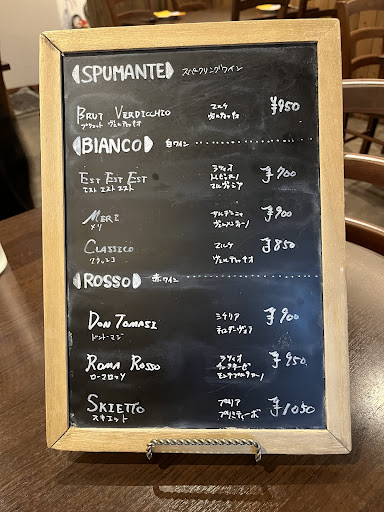 SPUMANTE スパークリングワイン
BRUT VERDICCHIO マルケ ¥950
ブリュット ヴェルディッキオ ヴェルディッキオ
BIANCO 白ワイン
EST EST EST ラツィオ ¥700
エスト エスト エスト トレッビアーノ
マルヴァジア
MERI サルデーニャ ¥900
メリ ヴェルメンティーノ
CLASSICO マルケ ¥850
クラシコ ヴェルディッキオ
ROSSO 赤ワイン
DON TOMASI シチリア ¥900
ドン・トマージ ネロ・ダーヴォラ
ROMA ROSSO ラツィオ ¥950
ローマロッソ モンテプルチアーノ
SKIETTO プーリア ¥1050
スキエット プリミティーボ